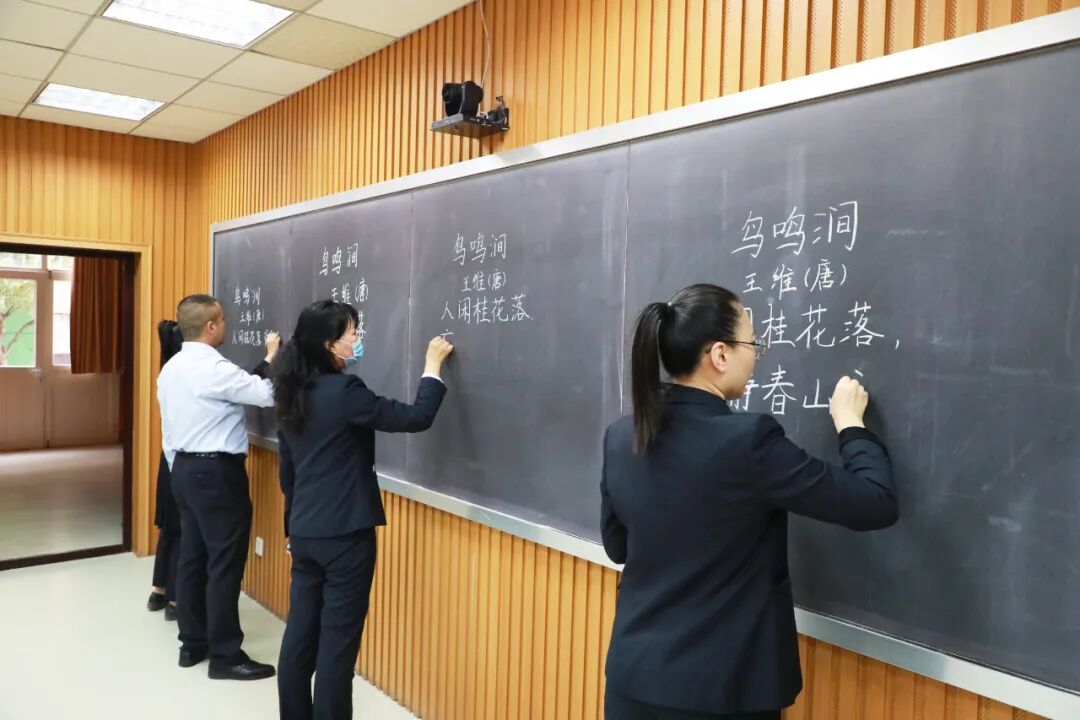 鸟鸣涧
王维(唐)
人闲桂花落
鸟鸣涧
王维(唐)
落
鸟鸣涧
王维(唐)
人闲桂花落,
鸟鸣涧
王维(唐)
桂花落,
静春山